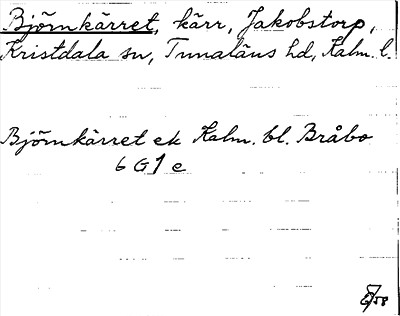 Björnkärret, kärr, Jakobstorp,
Kristdala sn, Tunaläns hd, Kalm. l.
Björnkärret ek Kalm. bl. Bråbo
6 G 1 e